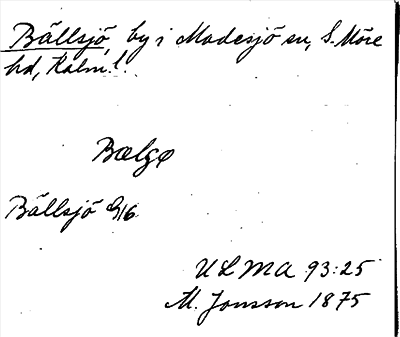 Bällsjö, by i Madesjö sn, S. Möre
hd, Kalm. l.
Bælgø
Bällsjö G16.
ULMA 93:25
M. Jonsson 1875